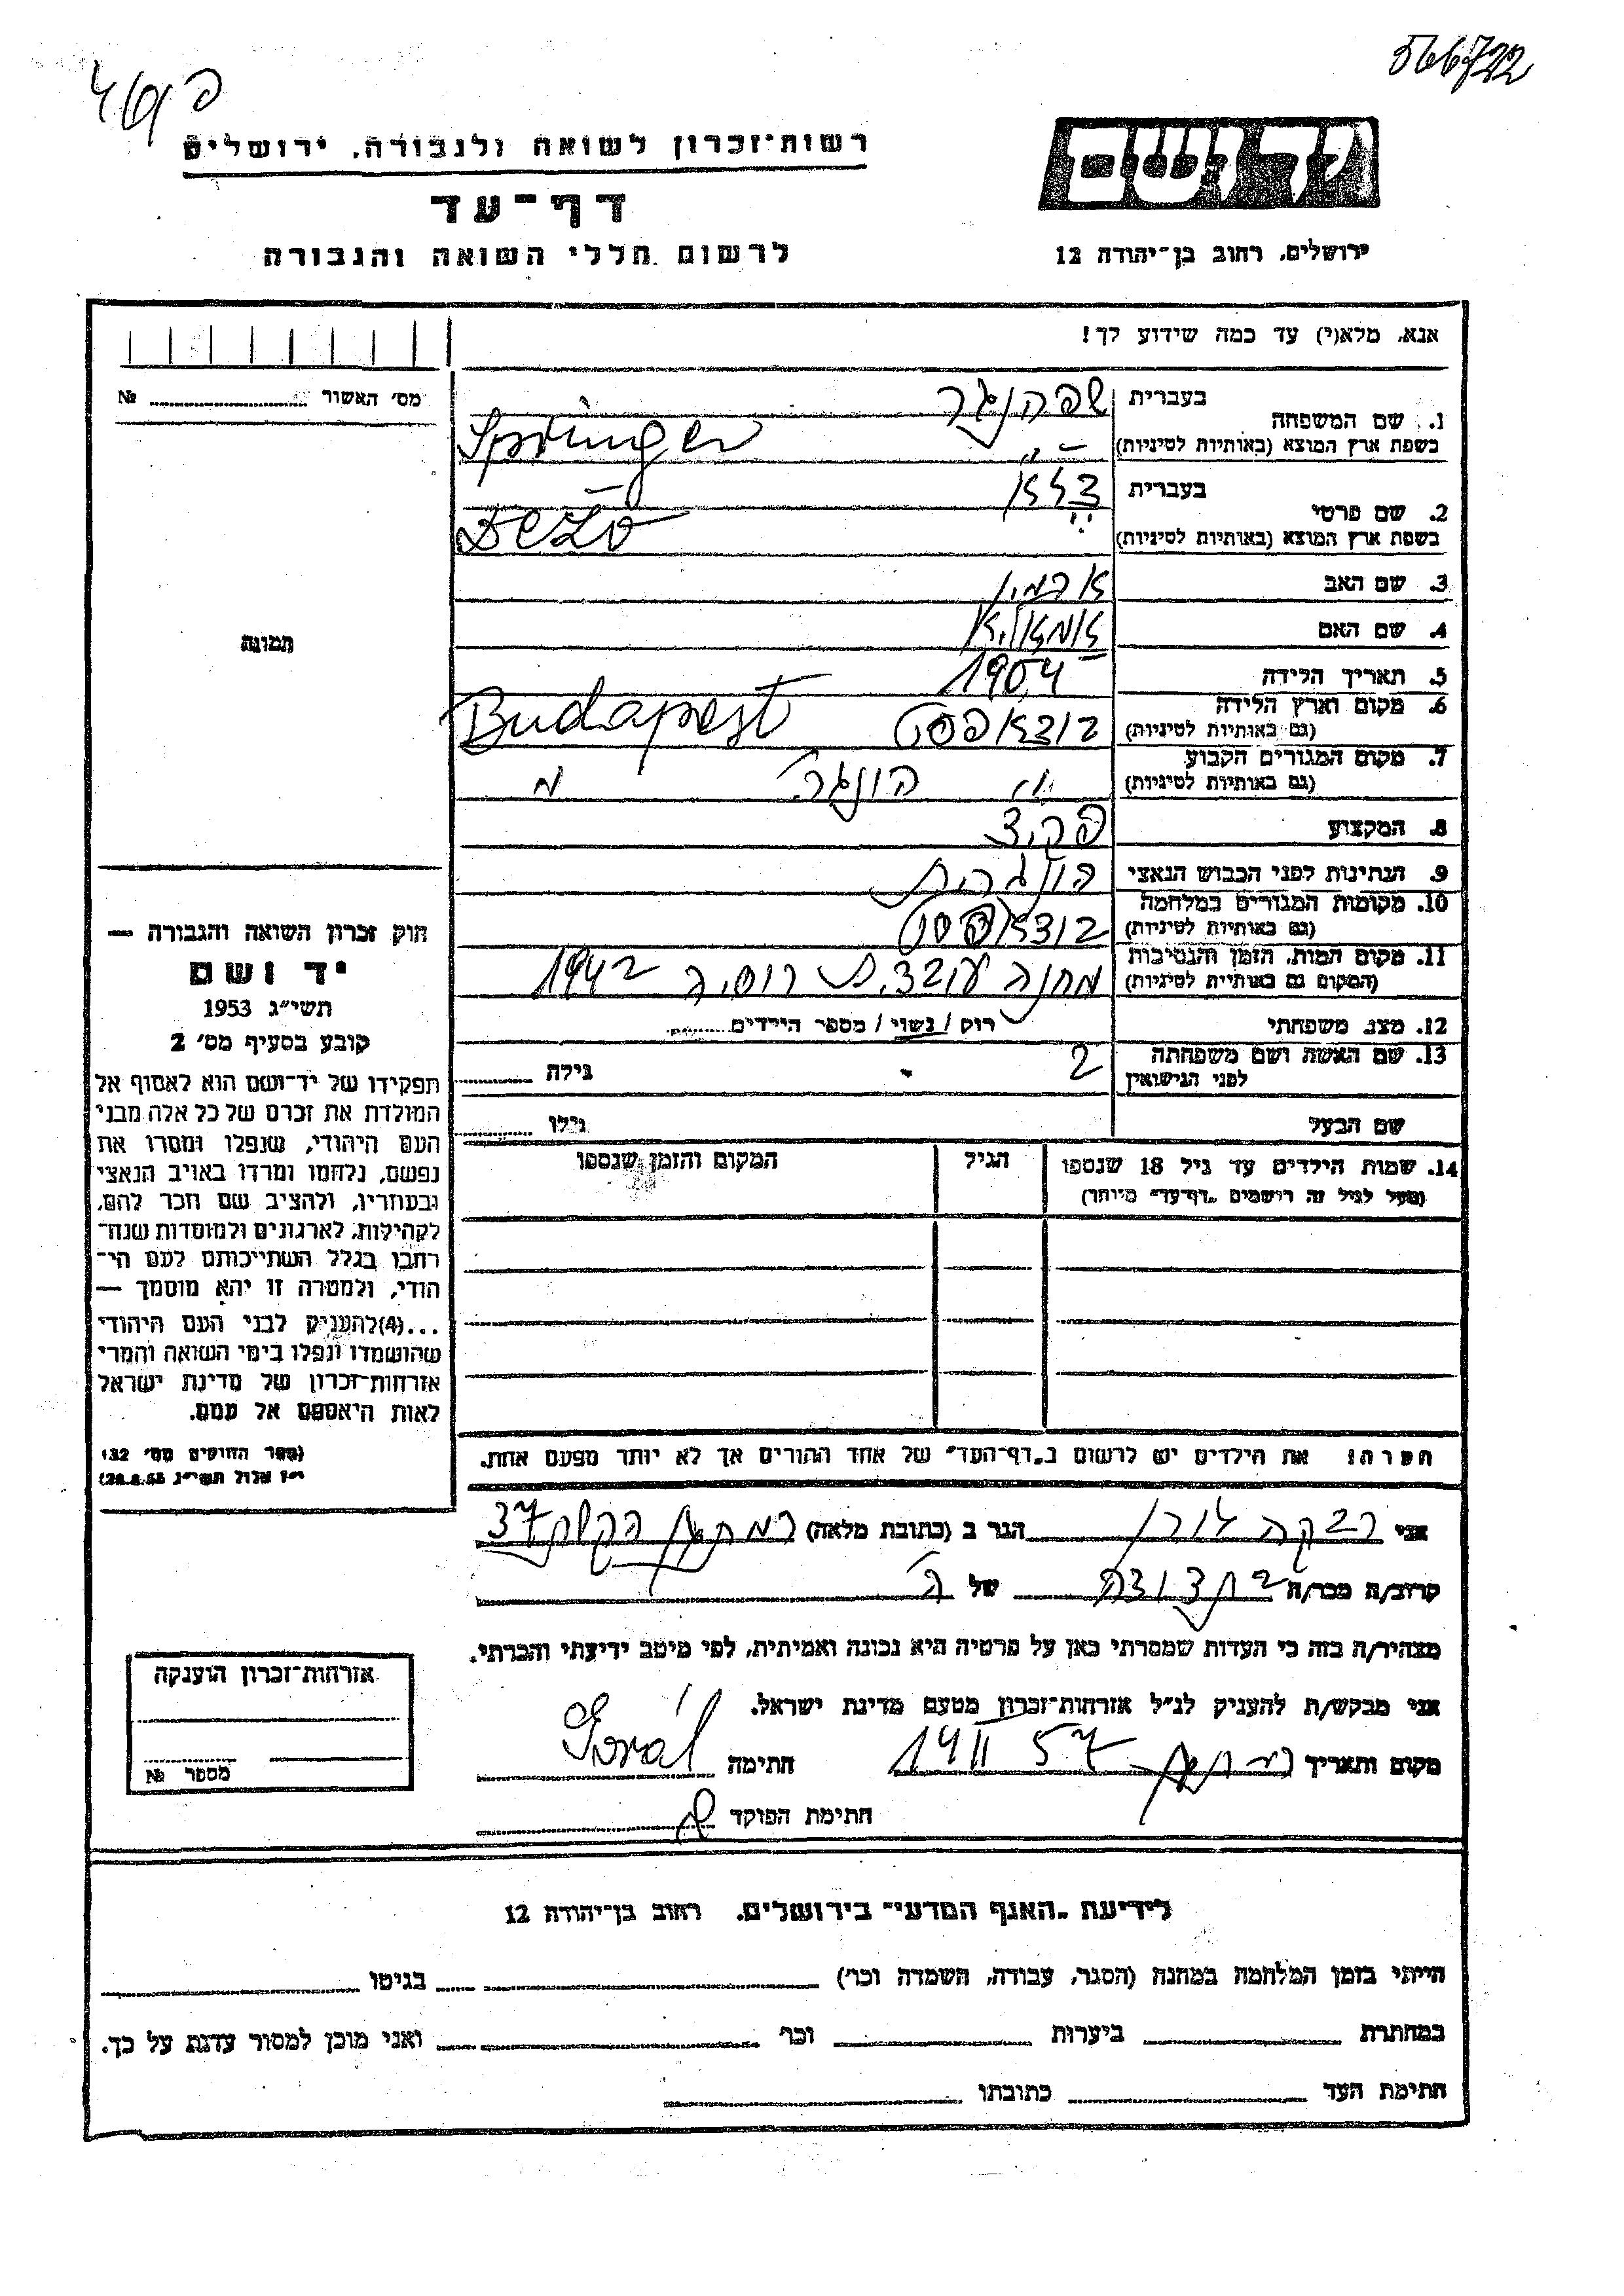 566722
רשות־זכרון לשואה ולגבורה, ירושלים
דף־עד
לרשום חללי השואה והגבורה
יד ושם
ירושלים, רחוב בן־יהודה 12
אנא, מלא(י) עד כמה שידוע לך!
מס' האשור № 
תמונה
1. שם המשפחה בעברית שפרינגר
בשפת ארץ המוצא (באותיות לטיניות) Springer
2. שם פרטי בעברית
בשפת ארץ המוצא (באותיות לטיניות) Dezső
3. שם האב ארמין
4. שם האם
5. תאריך הלידה 1904
6. מקום וארץ הלידה (גם באותיות לטיניות) בודאפסט Budapest
7. מקום המגורים הקבוע (גם באותיות לטיניות) " הונגריה
8. המקצוע פקיד
9. הנתינות לפני הכבוש הנאצי הונגרית
10. מקומות המגורים במלחמה (גם באותיות לטיניות) בודאפסט
11. מקום המות, הזמן והנסיבות (המקום גם באותיות לטיניות) מחנה עובדים רוסיה 1942
12. מצב משפחתי רוק / נשוי / מספר הילדים
13. שם האשה ושם משפחתה לפני הנישואין גילה
שם הבעל גילו
14. שמות הילדים עד גיל 18 שנספו הגיל המקום והזמן שנספו
(מעל לגיל זה רושמים "דף־עד" מיוחד)
הערה! את הילדים יש לרשום ב"דף־העד" של אחד ההורים אך לא יותר מפעם אחת.
חוק זכרון השואה והגבורה —
יד ושם
תשי"ג 1953
קובע בסעיף מס' 2
תפקידו של יד־ושם הוא לאסוף אל
המולדת את זכרם של כל אלה מבני
העם היהודי, שנפלו ומסרו את
נפשם, נלחמו ומרדו באויב הנאצי
ובעוזריו, ולהציב שם וזכר להם,
לקהילות, לארגונים ולמוסדות שנח־
רבו בגלל השתייכותם לעם הי־
הודי, ולמטרה זו יהא מוסמך —
...(4) להעניק לבני העם היהודי
שהושמדו ונפלו בימי השואה והמרי
אזרחות־זכרון של מדינת ישראל
לאות היאספם אל עמם.
(ספר החוקים מס' 132
י"ז אלול תשי"ג 28.8.53)
אני רבקה הגר ב (כתובת מלאה) רמת גן הקשת 37
קרוב/ה מכר/ה בת דודה של ה
מצהיר/ה בזה כי העדות שמסרתי כאן על פרטיה היא נכונה ואמיתית, לפי מיטב ידיעתי והכרתי.
אני מבקש/ת להעניק לנ"ל אזרחות־זכרון מטעם מדינת ישראל.
מקום ותאריך רמת גן 14 II 57 חתימה
חתימת הפוקד
אזרחות־זכרון הוענקה
מספר №
לידיעת "האגף המדעי" בירושלים, רחוב בן־יהודה 12
הייתי בזמן המלחמה במחנה (הסגר, עבודה, השמדה וכו') בגיטו
במחתרת ביערות וכו' ואני מוכן למסור עדות על כך.
חתימת העד כתובתו